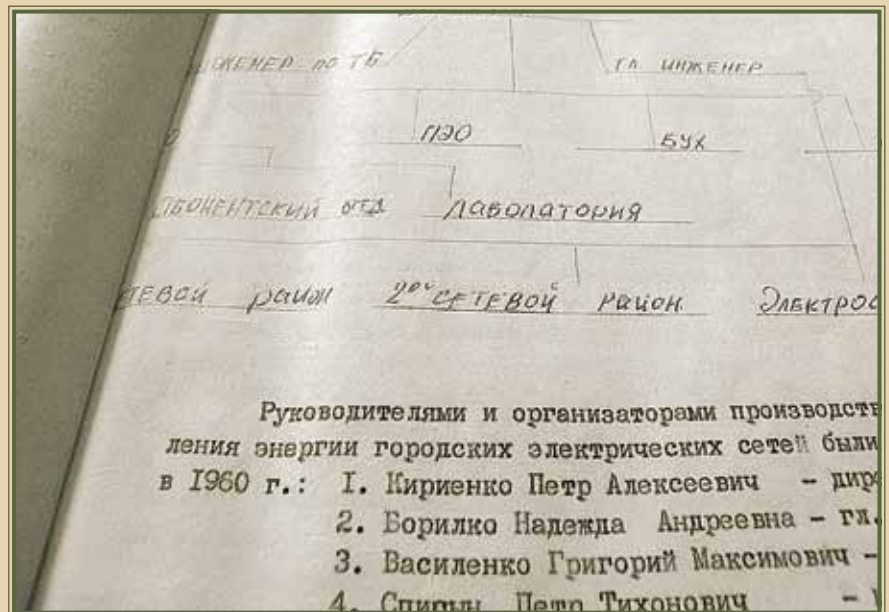 ИНЖЕНЕР ПО ТБ ГЛ ИНЖЕНЕР
ПЭО БУХ
АБОНЕНТСКИЙ ОТД ЛАБОЛАТОРИЯ
ТЕВОЙ район 2ой СЕТЕВОЙ район ЭЛЕКТРОС
Руководителями и организаторами производств
ления энергии городских электрических сетей были
в I960 г.: I. Кириенко Петр Алексеевич - дире
2. Борилко Надежда Андреевна - гл.
3. Василенко Григорий Максимович -
4. Петр Тихонович -